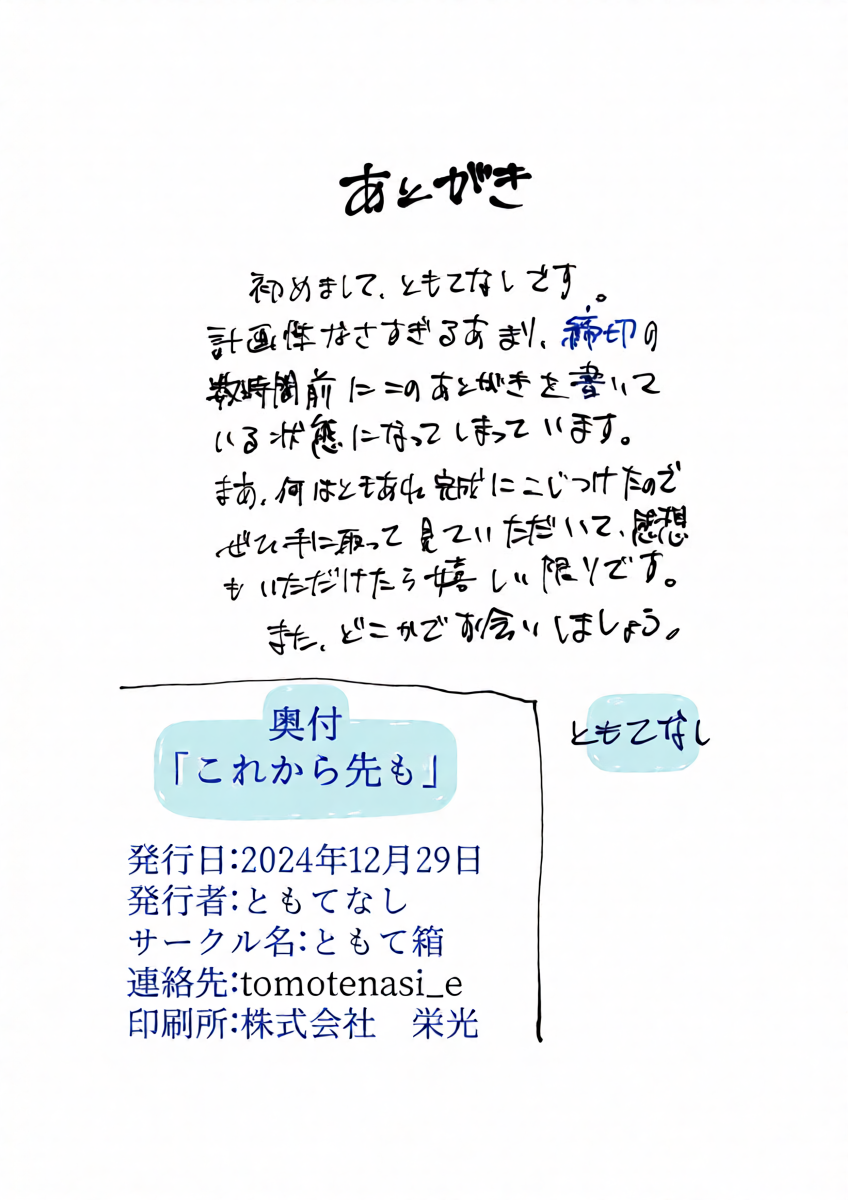 あとがき
初めまして、ともてなしです。
計画性なさすぎるあまり、締切の
数時間前にこのあとがきを書いて
いる状態になってしまっています。
まあ、何はともあれ完成にこじつけたので
ぜひ手に取って見ていただいて、感想
もいただけたら嬉しい限りです。
また、どこかでお会いしましょう。
ともてなし
奥付
「これから先も」
発行日:2024年12月29日
発行者:ともてなし
サークル名:ともて箱
連絡先:tomotenasi_e
印刷所:株式会社　栄光